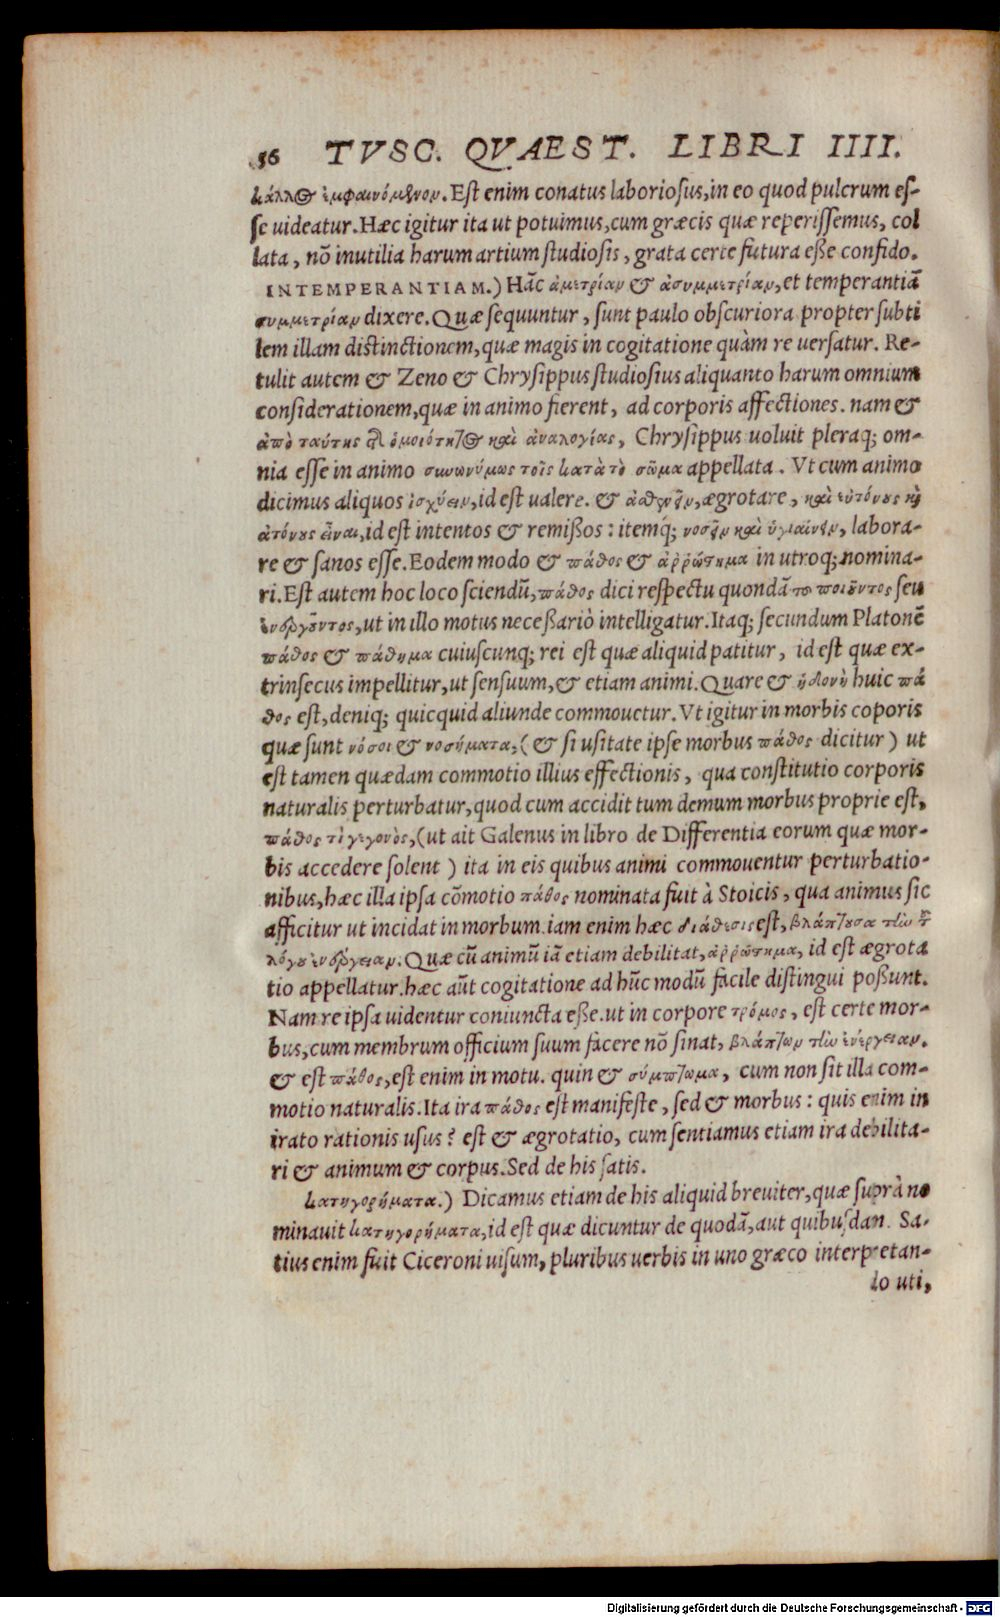 56 TVSC. QVAEST. LIBRI IIII.
κάλλος ἐμφαινόμενον. Est enim conatus laboriosus, in eo quod pulcrum es-
se uideatur. Hæc igitur ita ut potuimus, cum græcis quæ reperissemus, col
lata, nõ inutilia harum artium studiosis, grata certe futura eße confido.
INTEMPERANTIAM.) Hãc ἀμετρίαν & ἀσυμμετρίαν, et temperantiã
συμμετρίαν dixere. Quæ sequuntur, sunt paulo obscuriora propter subti
lem illam distinctionem, quæ magis in cogitatione quàm re uersatur. Re-
tulit autem & Zeno & Chrysippus studiosius aliquanto harum omnium
considerationem, quæ in animo fierent, ad corporis affectiones. nam &
ἀπὸ ταύτης δὲ ὁμοιότητος καὶ ἀναλογίας, Chrysippus uoluit pleraq; om-
nia esse in animo συνωνύμως τοῖς κατὰ τὸ σῶμα appellata. Vt cum animo
dicimus aliquos ἰσχύειν, id est ualere. & ἀσθενεῖν, ægrotare, καὶ εὐτόνους καὶ
ἀτόνους εἶναι, id est intentos & remißos: itemq́; νοσεῖν καὶ ὑγιαίνειν, labora-
re & sanos esse. Eodem modo & πάθος & ἀῤῥώστημα in utroq; nomina-
ri. Est autem hoc loco sciendũ, πάθος dici respectu quondã τοῦ ποιοῦντος seu
ἐνεργοῦντος, ut in illo motus neceßariò intelligatur. Itaq; secundum Platonẽ
πάθος & πάθημα cuiuscunq; rei est quæ aliquid patitur, id est quæ ex-
trinsecus impellitur, ut sensuum, & etiam animi. Quare & ἡδονὴ huic πά
θος est, deniq; quicquid aliunde commouetur. Vt igitur in morbis coporis
quæ sunt νόσοι & νοσήματα, (& si usitate ipse morbus πάθος dicitur) ut
est tamen quædam commotio illius effectionis, qua constitutio corporis
naturalis perturbatur, quod cum accidit tum demum morbus proprie est,
πάθος τὶ γεγονὸς, (ut ait Galenus in libro de Differentia eorum quæ mor-
bis accedere solent) ita in eis quibus animi commouentur perturbatio-
nibus, hæc illa ipsa cõmotio πάθος nominata fuit à Stoicis, qua animus sic
afficitur ut incidat in morbum. iam enim hæc διάθεσις est, βλάπτουσα τὴν τοῦ
λόγου ἐνέργειαν. Quæ cũ animũ iã etiam debilitat, ἀῤῥώστημα, id est ægrota
tio appellatur. hæc aũt cogitatione ad hũc modũ facile distingui poßunt.
Nam re ipsa uidentur coniuncta eße. ut in corpore τρόμος, est certe mor-
bus, cum membrum officium suum facere nõ sinat, βλάπτων τὴν ἐνέργειαν.
& est πάθος, est enim in motu. quin & σύμπτωμα, cum non sit illa com-
motio naturalis. Ita ira πάθος est manifeste, sed & morbus: quis enim in
irato rationis usus? est & ægrotatio, cum sentiamus etiam ira debilita-
ri & animum & corpus. Sed de his satis.
κατηγορήματα.) Dicamus etiam de his aliquid breuiter, quæ suprà no
minauit κατηγορήματα, id est quæ dicuntur de quodã, aut quibusdan. Sa-
tius enim fuit Ciceroni uisum, pluribus uerbis in uno græco interpretan-
do uti,
Digitalisierung gefördert durch die Deutsche Forschungsgemeinschaft - DFG